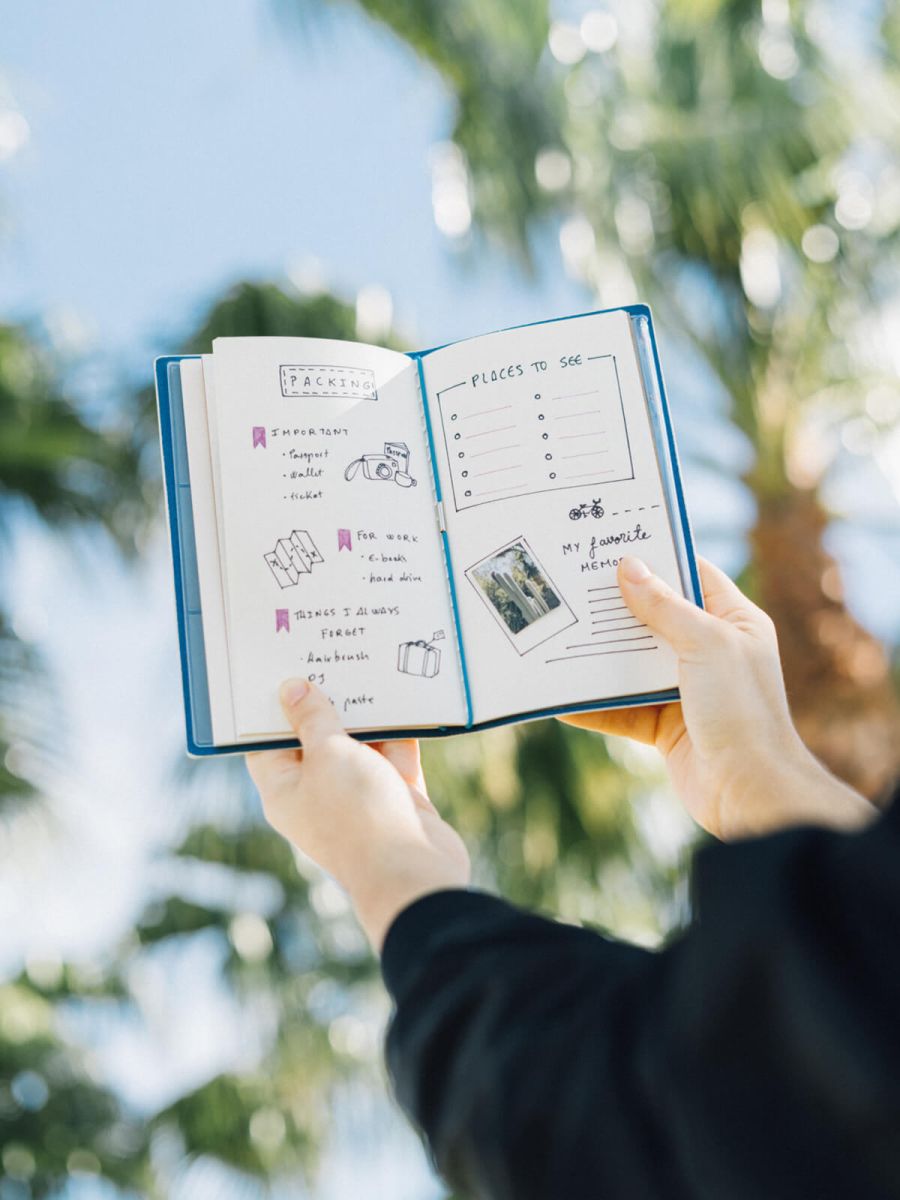 PACKING
IMPORTANT
• Passport
• wallet
• ticket
Passport
FOR WORK
• E-books
• hard drive
THINGS I ALWAYS
FORGET
• Hairbrush
PJ
paste
PLACES TO SEE
MY favorite